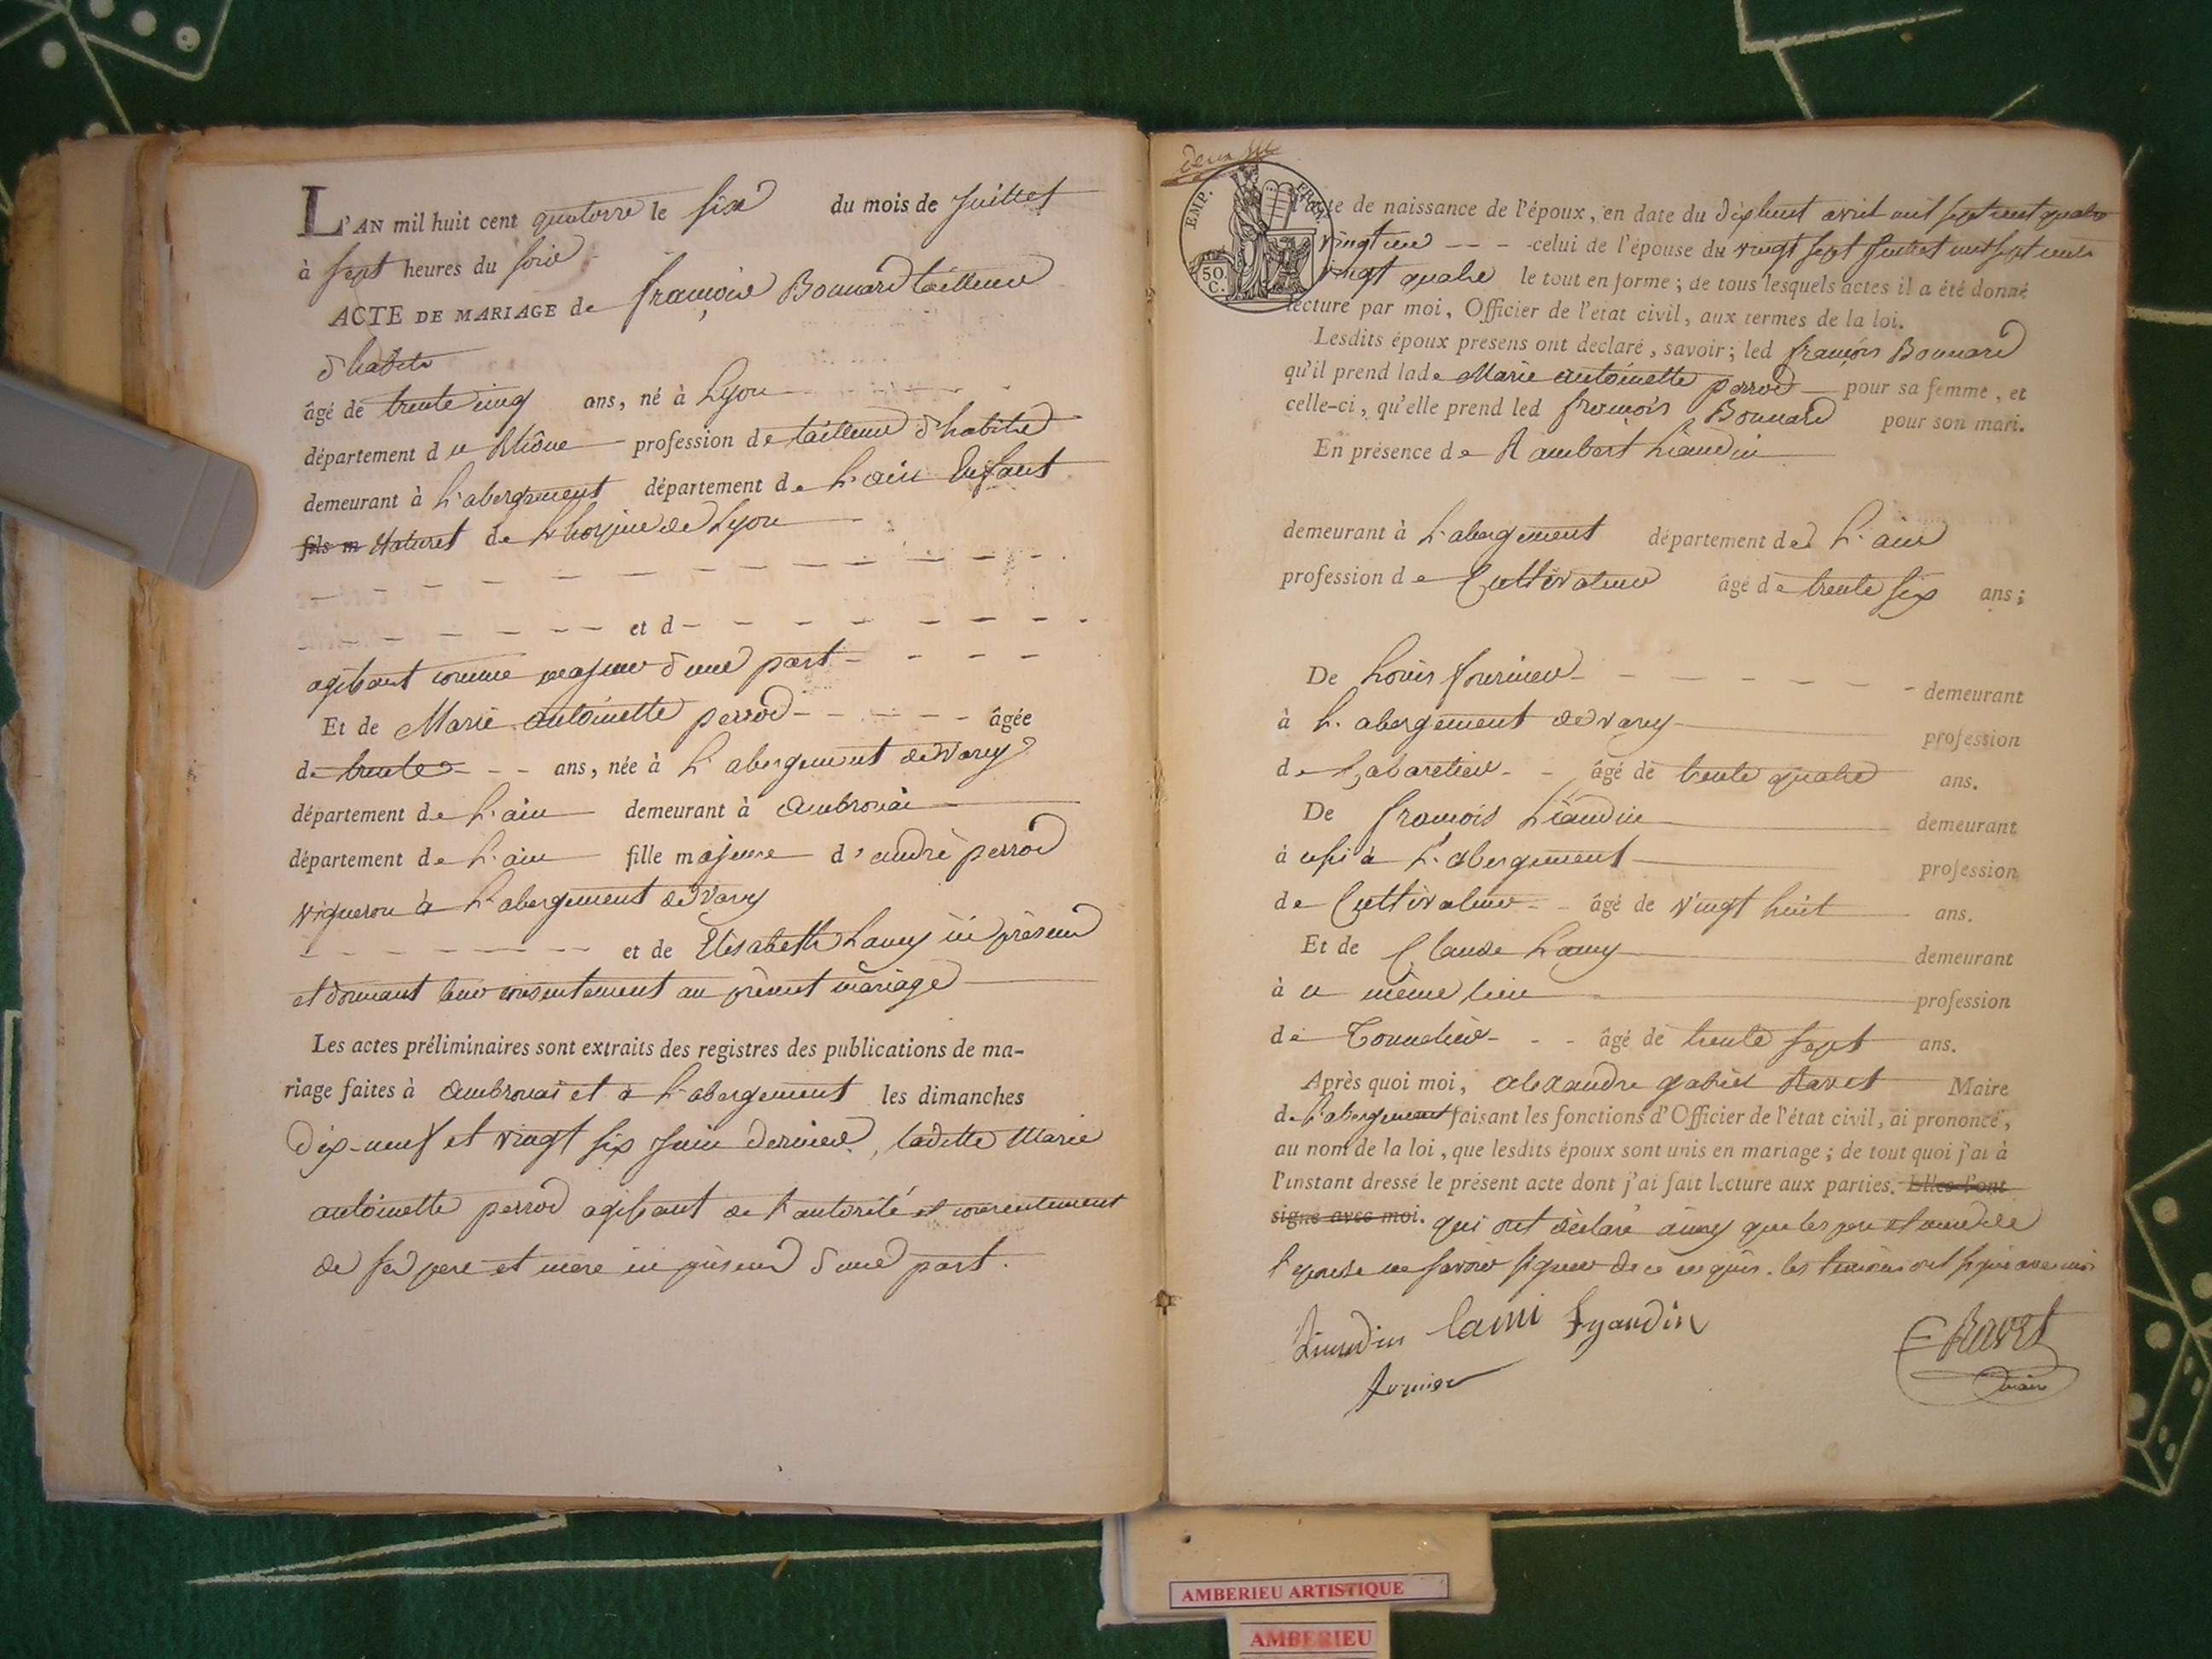 L'AN mil huit cent quatorze le six du mois de Juillet
à sept heures du soir
ACTE DE MARIAGE de françois Bonnard tailleur
d'habits
âgé de trente cinq ans, né à Lyon
département du Rhône profession de tailleur d'habits
demeurant à L'abergement département de L'ain Enfant
fils m Naturel de Lyon
et d
agissant comme majeur d'une part
Et de Marie antoinette perrod âgée
de trente ans, née à L'abergement de Varey
département de L'ain demeurant à ambronai
département de L'ain fille majeure d'andré perrod
vigneron à L'abergement de Varey
et de Elisabeth Lamy ici présents
et donnant leur consentement au présent mariage
Les actes préliminaires sont extraits des registres des publications de ma-
riage faites à ambronai et à L'abergement les dimanches
dix-neuf et vingt six juin dernier, ladite Marie
antoinette perrod agissant de l'autorité et consentement
de ses pere et mère ici présents d'une part.
EMP. FRAN.
50.
C.
te de naissance de l'époux, en date du dix huit avril mil sept cent quatre
vingt celui de l'épouse du vingt sept Juillet mil sept cent
vingt quatre le tout en forme; de tous lesquels actes il a été donné
lecture par moi, Officier de l'état civil, aux termes de la loi.
Lesdits époux présens ont declaré, savoir; led françois Bonnard
qu'il prend lade Marie antoinette perrod pour sa femme, et
celle-ci, qu'elle prend led françois Bonnard pour son mari.
En présence de Rambert Liaudin
demeurant à L'abergement département de L'ain
profession de Cultivateur âgé de trente six ans;
De Louis fournier demeurant
à L'abergement de varey profession
de Cabaretier âgé de trente quatre ans.
De françois Liaudin demeurant
à aussi à L'abergement profession
de Cultivateur âgé de vingt huit ans.
Et de Claude Lamy demeurant
à ce même lieu profession
de Tonnelier âgé de trente sept ans.
Après quoi moi, alexandre gabriel Ravet Maire
de L'abergement faisant les fonctions d'Officier de l'état civil, ai prononcé,
au nom de la loi, que lesdits époux sont unis en mariage; de tout quoi j'ai à
l'instant dressé le présent acte dont j'ai fait lecture aux parties. Elles l'ont
signé avec moi. qui ont déclaré ainsy que les pere et mere de
l'epouse ne savoir signer de ce enquis. les temoins ont signé avec moi
Liaudin lami Lyaudin Ravet
fornier maire
AMBERIEU ARTISTIQUE
AMBERIEU